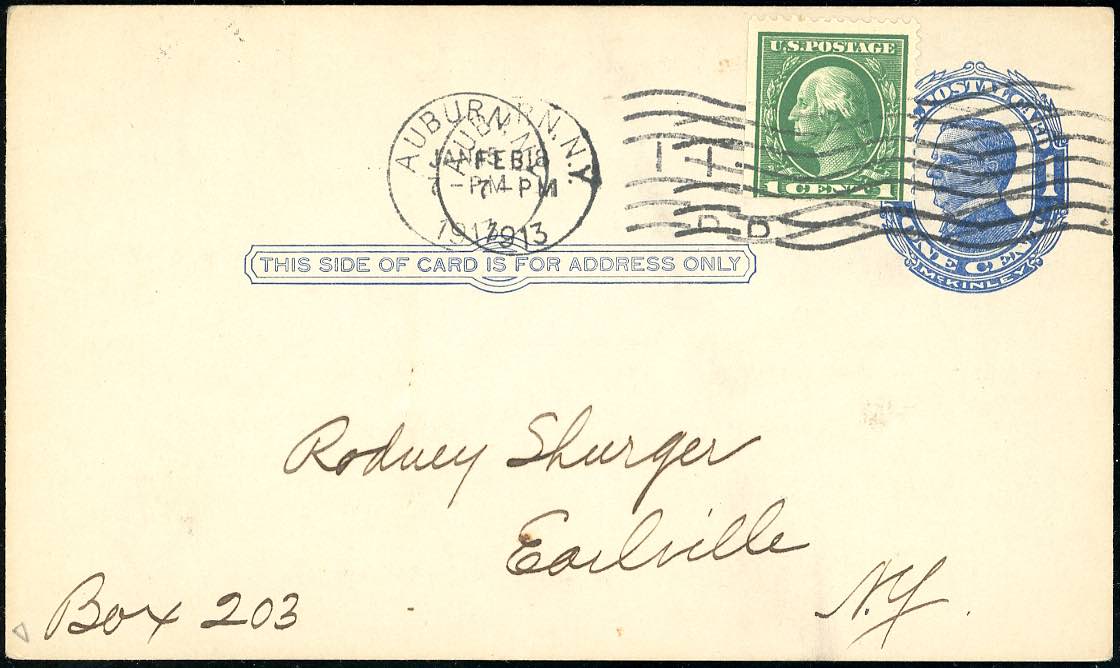 U.S.POSTAGE
1 CENT 1
POSTAL CARD
1
ONE CENT
McKINLEY
AUBURN, N.Y.
FEB 18
7 - PM
1913
AUBURN, N.Y.
JAN
- PM
1913
THIS SIDE OF CARD IS FOR ADDRESS ONLY
Rodney Shurger
Earlville
N.Y.
Box 203